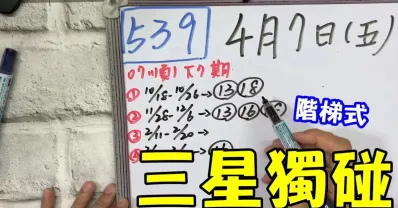 539 4月7日(五)
07順下7期
① 10/18-10/26→⑬⑱
② 11/28-12/6→⑬⑯
③ 2/11-2/20→
階梯式
三星獨碰